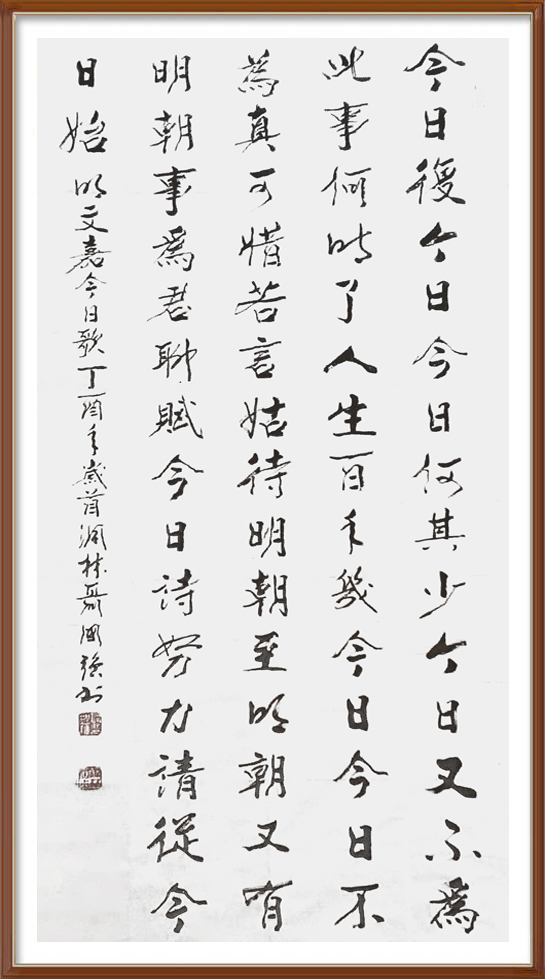 今日復今日今日何其少今日又不為
此事何時了人生百年幾今日今日不
為真可惜若言姑待明朝至明朝又有
明朝事為君聊賦今日詩努力請從今
日始 明文嘉今日歌丁酉年歲首林聶國強书